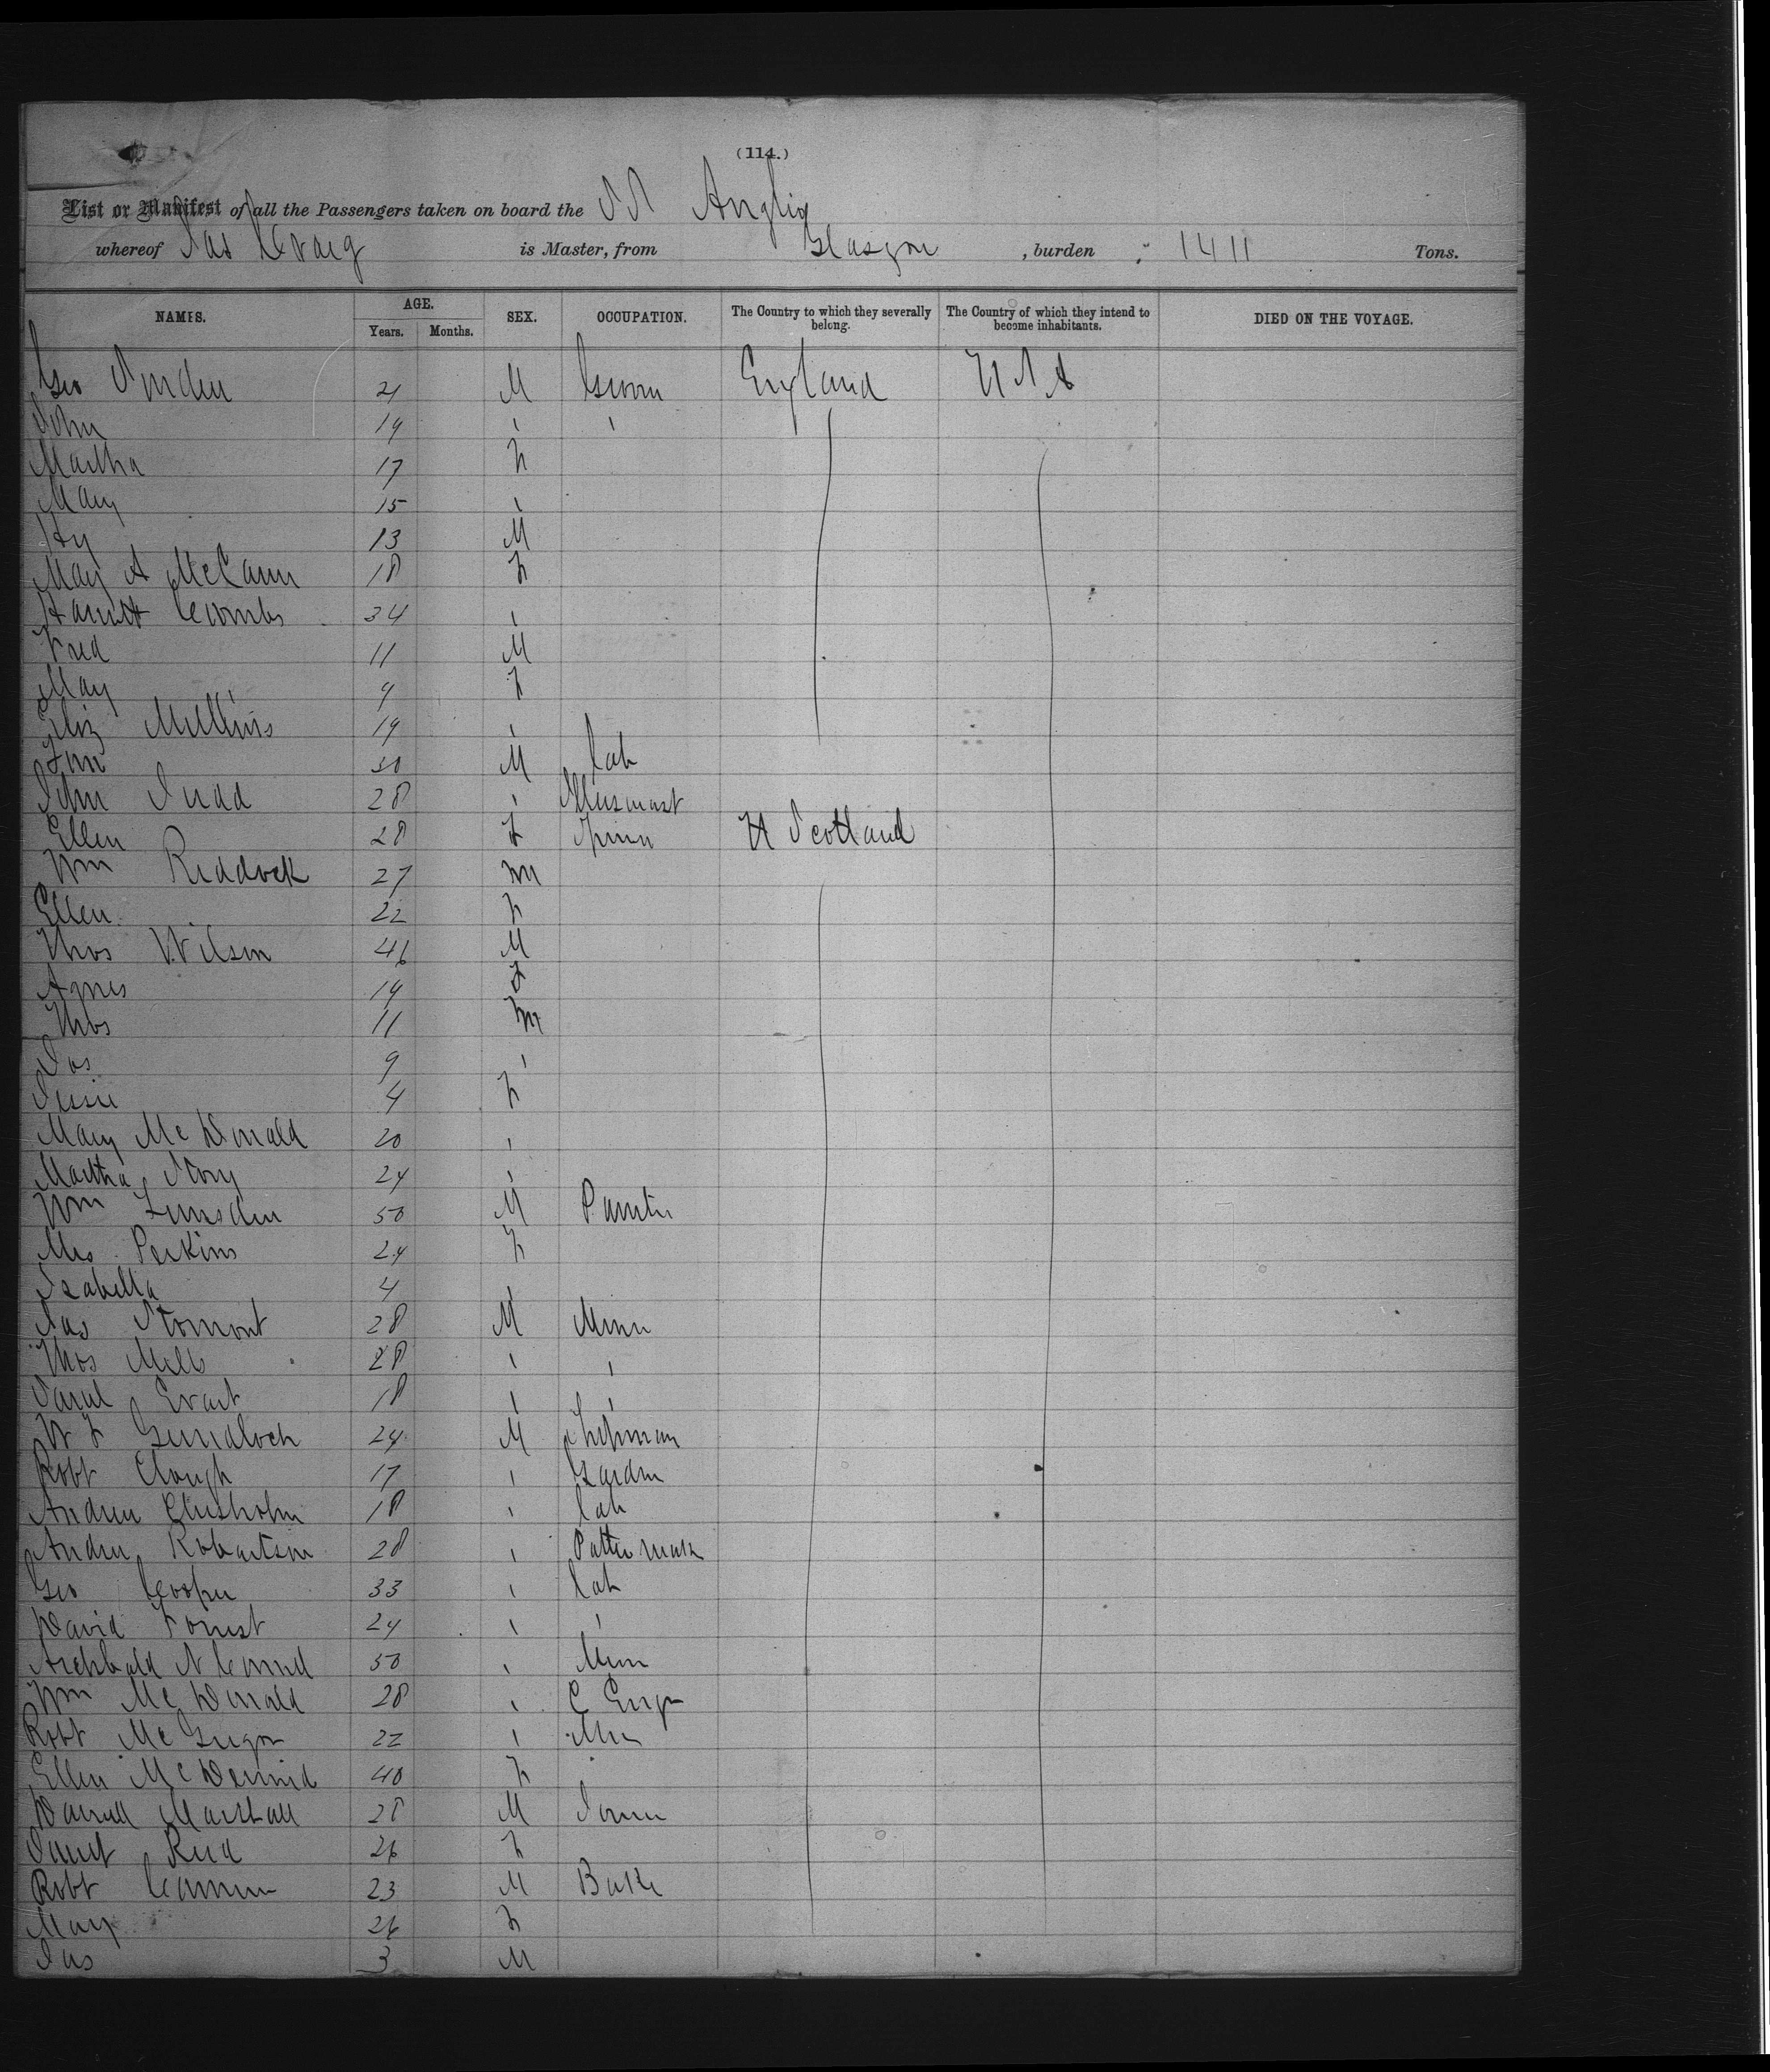 (114.)
List or Manifest of all the Passengers taken on board the SS Anglia
whereof Jas Craig is Master, from Glasgow, burden 1411 Tons.
NAMES. AGE. SEX. OCCUPATION. The Country to which they severally belong. The Country of which they intend to become inhabitants. DIED ON THE VOYAGE.
Years. Months.
Geo 21 M England U S A
John 19 "
Martha 17 F
Mary 15 "
Hy 13 M
Mary A McCann 18 F
Harriett Coombs 34 "
Fred 11 M
May 9 F
Eliz Mullins 19 "
30 M Lab
John Judd 28 "
Ellen 28 F Scotland
Wm Riddock 27 M
Ellen 22 F
Thos Wilson 46 M
Agnes 19 F
Thos 11 M
Jas 9 "
Jessie 4 F
Mary McDonald 20 "
Martha Story 24 "
Wm Lumsden 50 M Painter
Mrs Perkins 24 F
Isabella 4 "
Jas Stormont 28 M Miner
Thos Mills 28 " "
18 " "
24 M
Robt Clough 17 " Gardnr
Andrew Chisholm 18 " Lab
Andrew Robertson 28 " Patter mak
Geo Cooper 33 " Lab
David Forrest 24 " "
Archibald 50 "
Wm McDonald 28 " C Engr
Robt McGregor 22 "
Ellen McDermid 40 F
Marshall 28 M Joiner
Janet Reid 26 F
Robt 23 M Bake
Mary 26 F
Jas 3 M